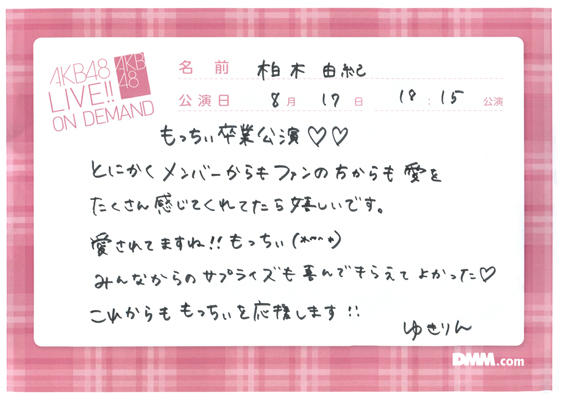 AKB48
LIVE!!
ON DEMAND
AKB
48
名前 柏木 由紀
公演日 8月 17日 18:15 公演
もっちぃ卒業公演♡♡
とにかくメンバーからもファンの方からも愛を
たくさん感じてくれてたら嬉しいです。
愛されてますね!!もっちぃ(*^^*)
みんなからのサプライズも喜んでもらえてよかった♡
これからももっちぃを応援します!!
ゆきりん
DMM.com